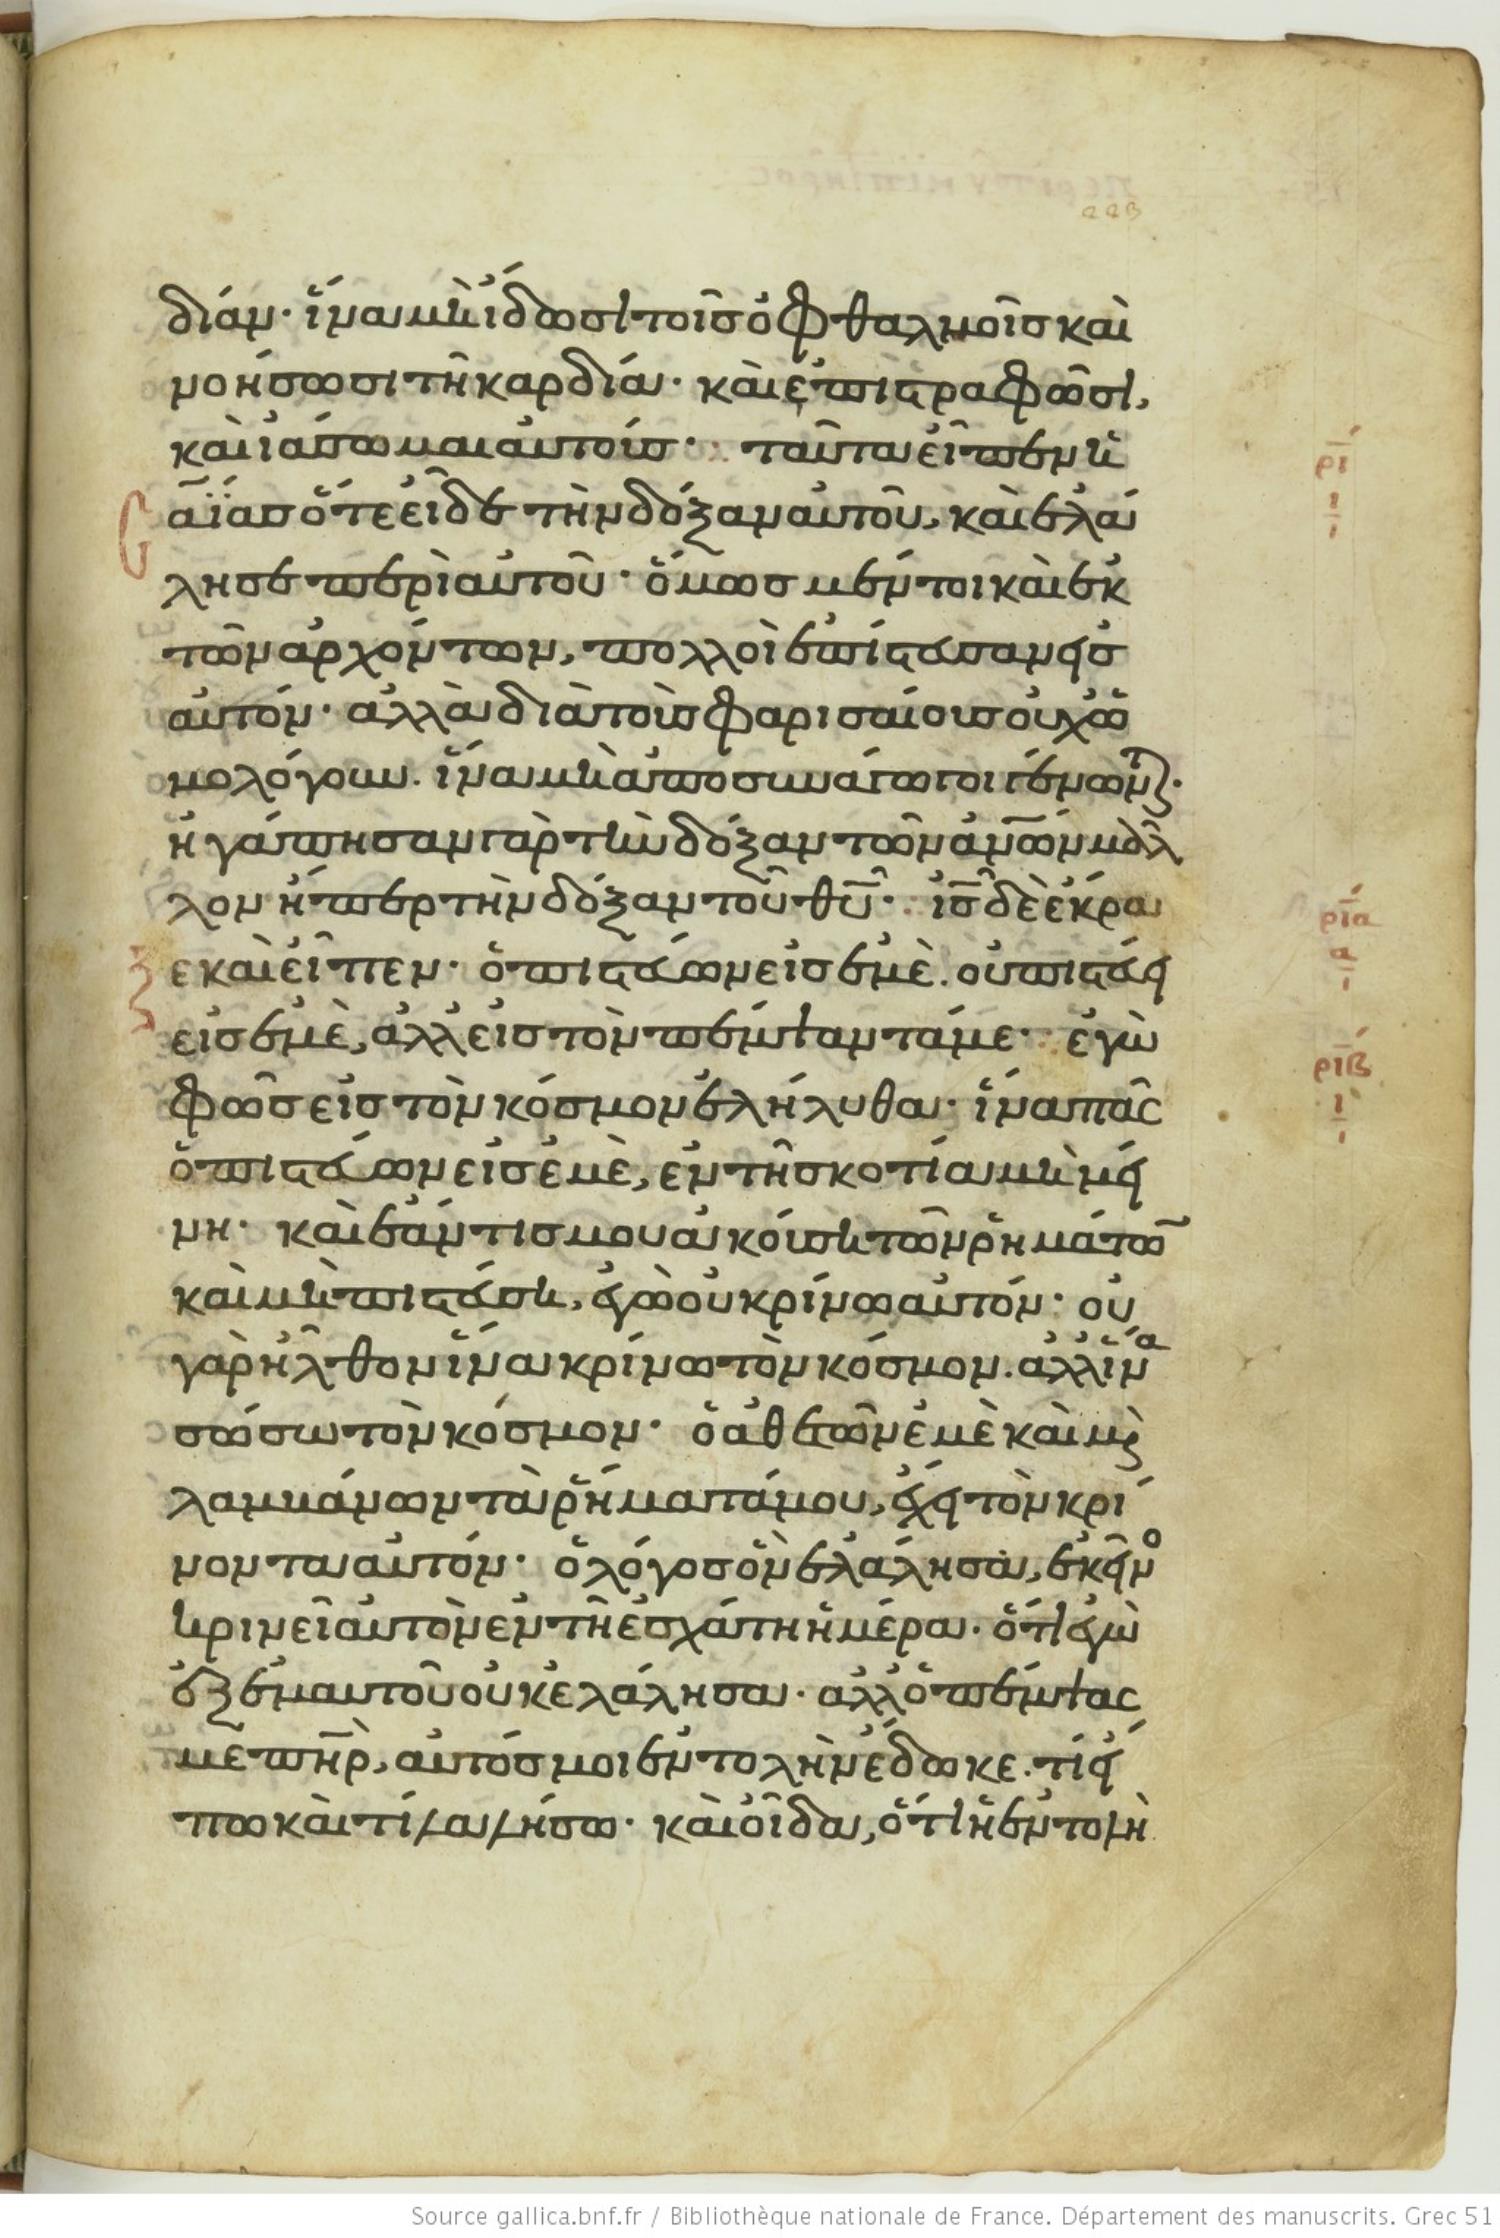 διάν· ἵνα μὴ ἴδωσι τοῖς ὀφθαλμοῖς καὶ
νοήσωσι τῆ καρδία· καὶ ἐπιστραφῶσι,
καὶ ἰάσωμαι αὐτούς· ταῦτα εἶπεν ἡ
σαΐας ὅτε εἶδε τὴν δόξαν αὐτοῦ, καὶ ἐλά
λησε περὶ αὐτοῦ· ὅμως μέντοι καὶ ἐκ
τῶν ἀρχόντων, πολλοὶ ἐπίστευσαν εἰς
αὐτόν· ἀλλὰ διὰ τοὺς φαρισαίους οὐχ ὡ
μολόγουν. ἵνα μὴ ἀποσυνάγωγοι γένωντ·
ἠγάπησαν γὰρ τὴν δόξαν τῶν ἀνῶν μᾶλ
λον ἤπερ τὴν δόξαν τοῦ θῦ· ἰς δὲ ἔκρα
ξε καὶ εἶπεν· ὁ πιστεύων εἰς ἐμὲ. οὐ πιστεύει
εἰς ἐμὲ, ἀλλ εἰς τὸν πέμψαντά με· ἐγὼ
φῶς εἰς τὸν κόσμον ἐλήλυθα· ἵνα πᾶς
ὁ πιστεύων εἰς ἐμὲ, ἐν τῆ σκοτία μὴ μεί
νη· καὶ ἐάν τις μου ἀκούση τῶν ῥημάτω
καὶ μὴ πιστεύση, ἐγὼ οὐ κρίνω αὐτόν· οὐ
γὰρ ἦλθον ἵνα κρίνω τὸν κόσμον. ἀλλ ἵνα
σώσω τὸν κόσμον· ὁ ἀθετῶν ἐμὲ καὶ μὴ
λαμβάνων τὰ ῥήματά μου, ἔχει τὸν κρί
νοντα αὐτόν· ὁ λόγος ὃν ἐλάλησα, ἐκεῖνο
κρινεῖ αὐτὸν ἐν τῆ ἐσχάτη ἡμέρα· ὅτι ἐγὼ
ἐξ ἐμαυτοῦ οὐκ ἐλάλησα· ἀλλ ὁ πέμψας
με πὴρ, αὐτός μοι ἐντολὴν ἔδωκε. τί εἴ
πω καὶ τί λαλήσω· καὶ οἶδα, ὅτι ἡ ἐντολὴ
ρι
ι
ρια
α
ριβ
ι
Source gallica.bnf.fr / Bibliothèque nationale de France. Département des manuscrits. Grec 51